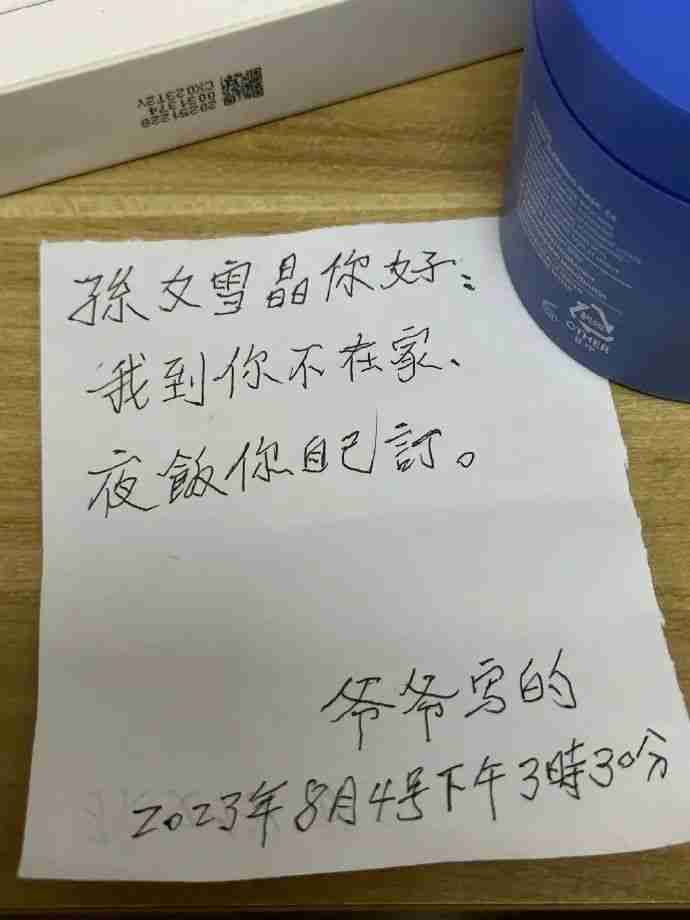 20251229
0031374
CX023T2V
孫女雪晶你好：
我到你不在家、
夜飯你自己訂。
爷爷写的
2023年8月4号下午3時30分
OTHER